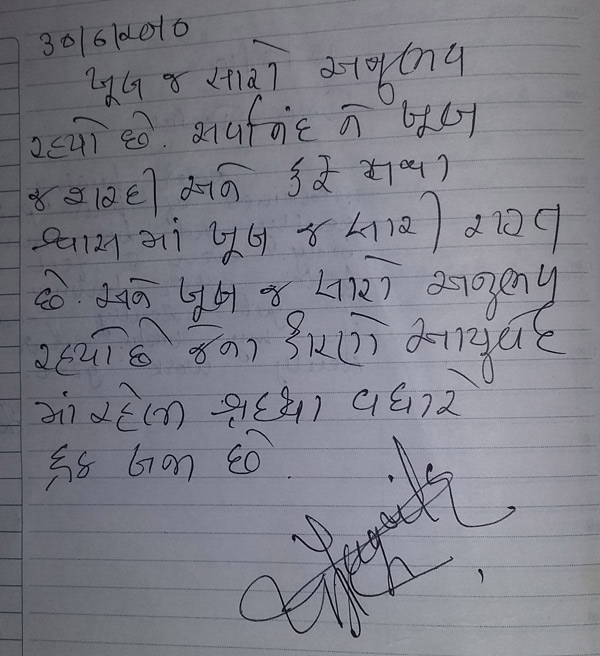 ૩૦/૬/૨૦૧૦
ખૂબ જ સારો અનુભવ
રહ્યો છે. સર્પાનંદ ને ખૂબ
જ શરદી અને કફ
શ્વાસ માં ખૂબ જ સારી રાહત
છે. અને ખૂબ જ સારો અનુભવ
રહ્યો છે જેના કારણે આયુર્વેદ
માં રહેલ શ્રદ્ધા વધારે
દ્રઢ બની છે.